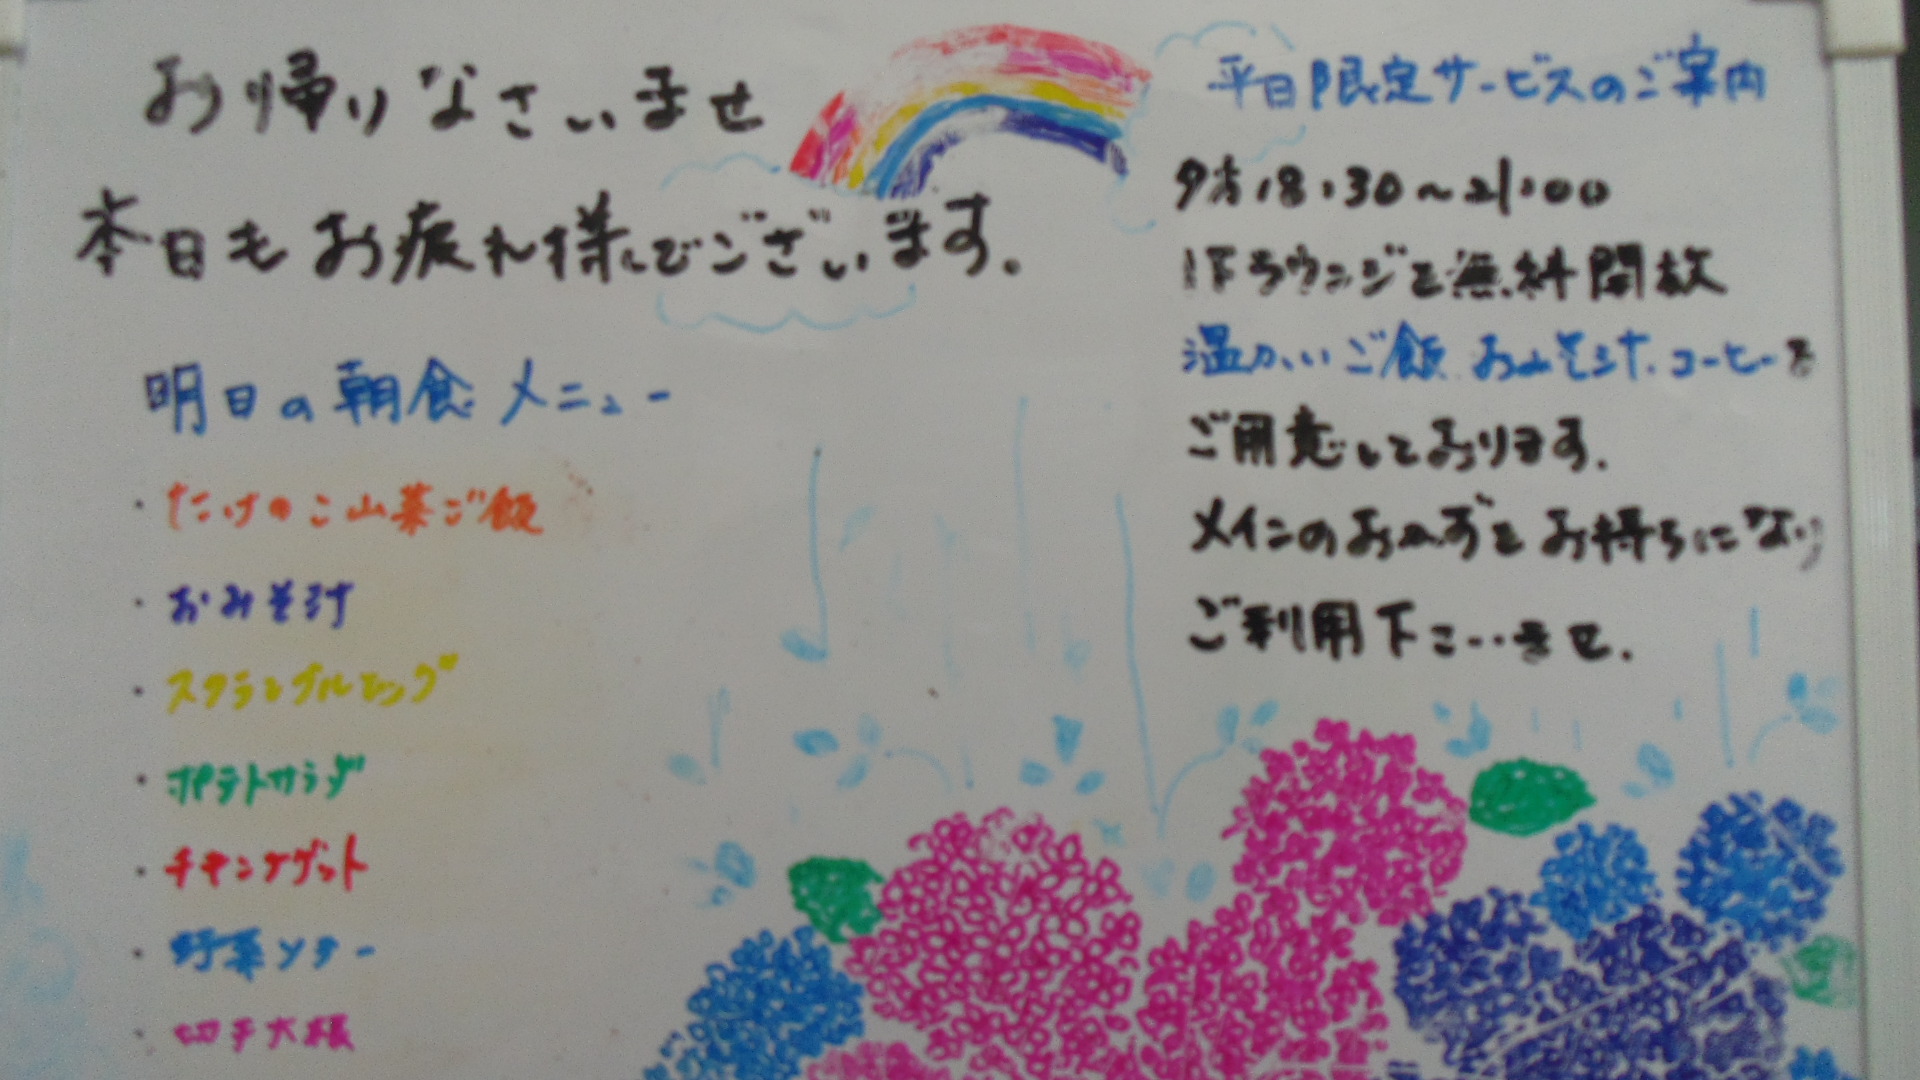 お帰りなさいませ
本日もお疲れ様でございます。
明日の朝食メニュー
・たけのこ山菜ご飯
・おみそ汁
・スクランブルエッグ
・ポテトサラダ
・チキンナゲット
・野菜ソテー
・切干大根
平日限定サービスのご案内
夕方18:30～21:00
1Fラウンジを無料開放
温かいご飯.おみそ汁.コーヒーを
ご用意しております.
メインのおかずをお持ちになり
ご利用下さいませ.